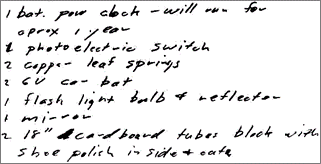 1 bat. pow clock – will run for
aprox 1 year
1 photoelectric switch
2 copper leaf springs
2 6V car bat
1 flash light bulb & reflector
1 mirror
2 18" cardboard tubes black with
shoe polich in side + oute